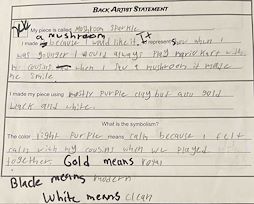 BACK ARTIST STATEMENT
My piece is called Mushroom Sparkle
a mushroom
I made because I would like it. It represent how when I
was younger I would always play mario kart with
my cousins when I see a mushroom it made
me smile
I made my piece using mostly purple clay but also gold
black and white.
What is the symbolism?
The color light purple means calm because I felt
calm with my cousins when we played
together. Gold means royal
Black means modern
White means clean